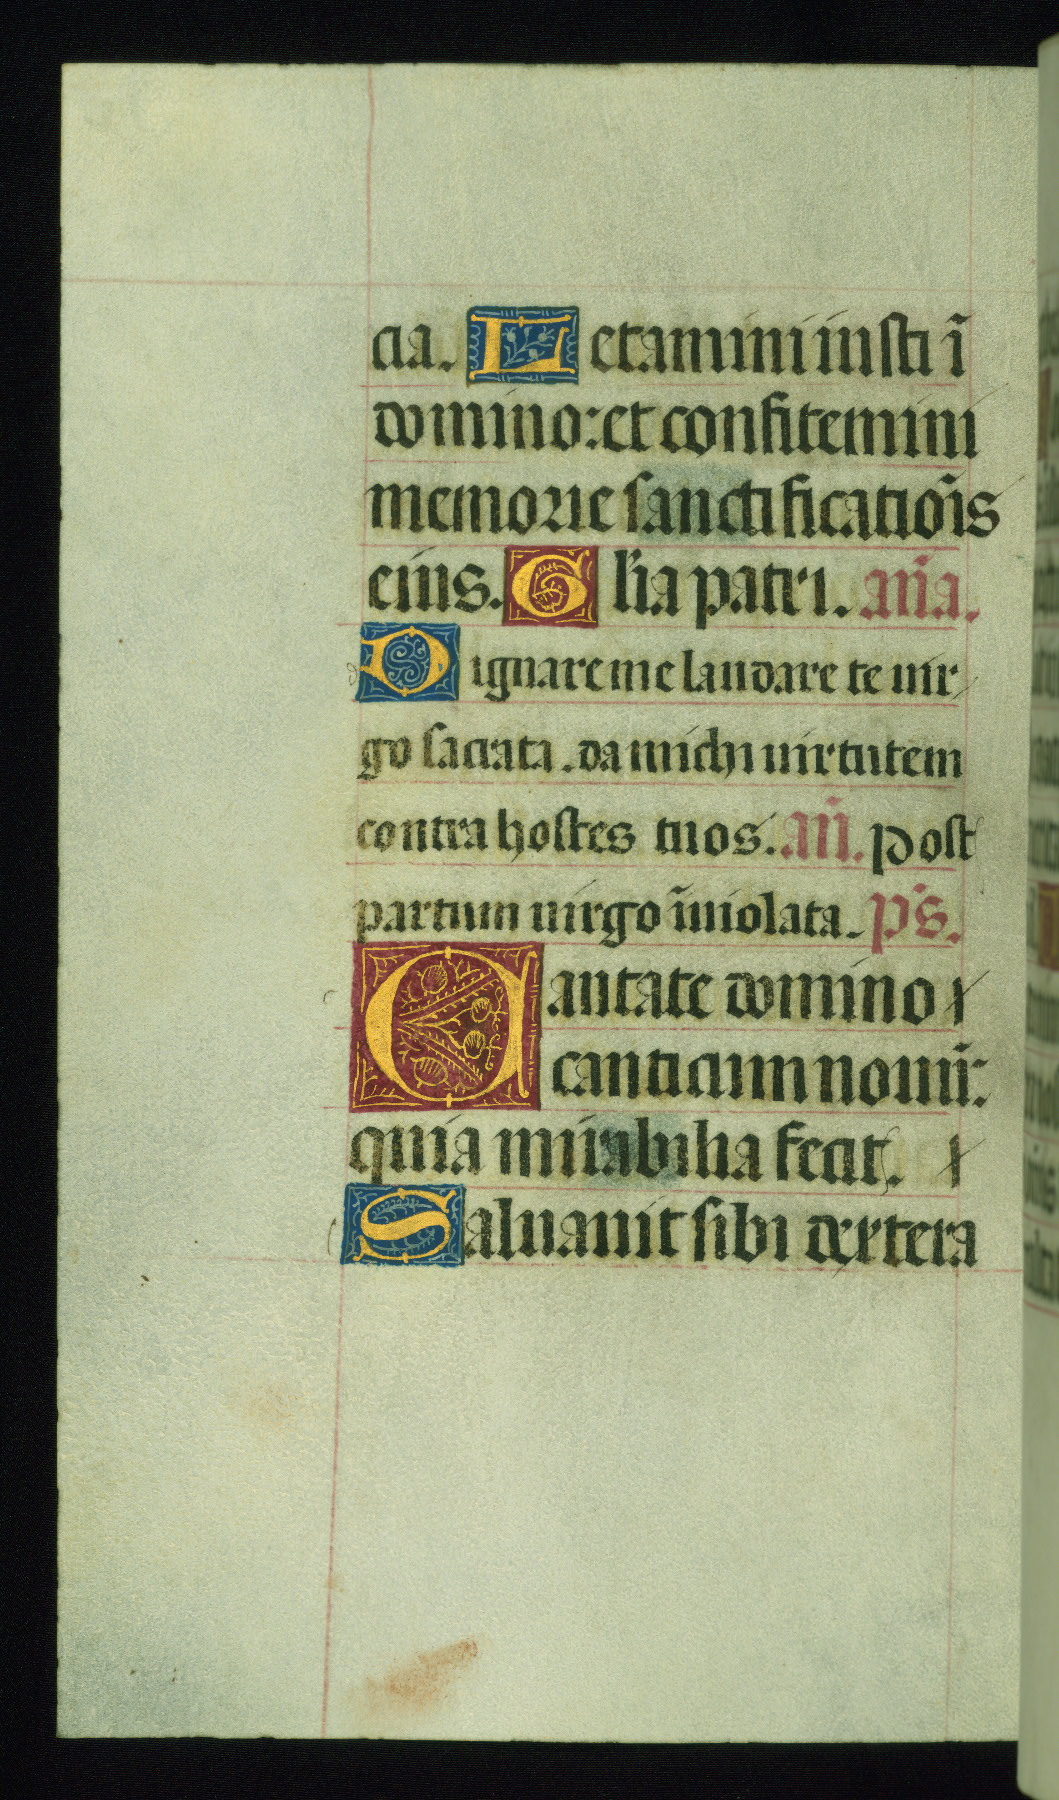 cia. Letamini iusti ĩ
domino: et confitemini
memorie sanctificatiõis
eius. Gl̃ia patri. aña.
Dignare me laudare te uir
go sacrata. da michi uirtutem
contra hostes tuos. añ. Post
partum uirgo ĩuiolata. p̃s.
Cantate domino
canticum nouũ:
quia mirabilia fecit.
Saluauit sibi dextera